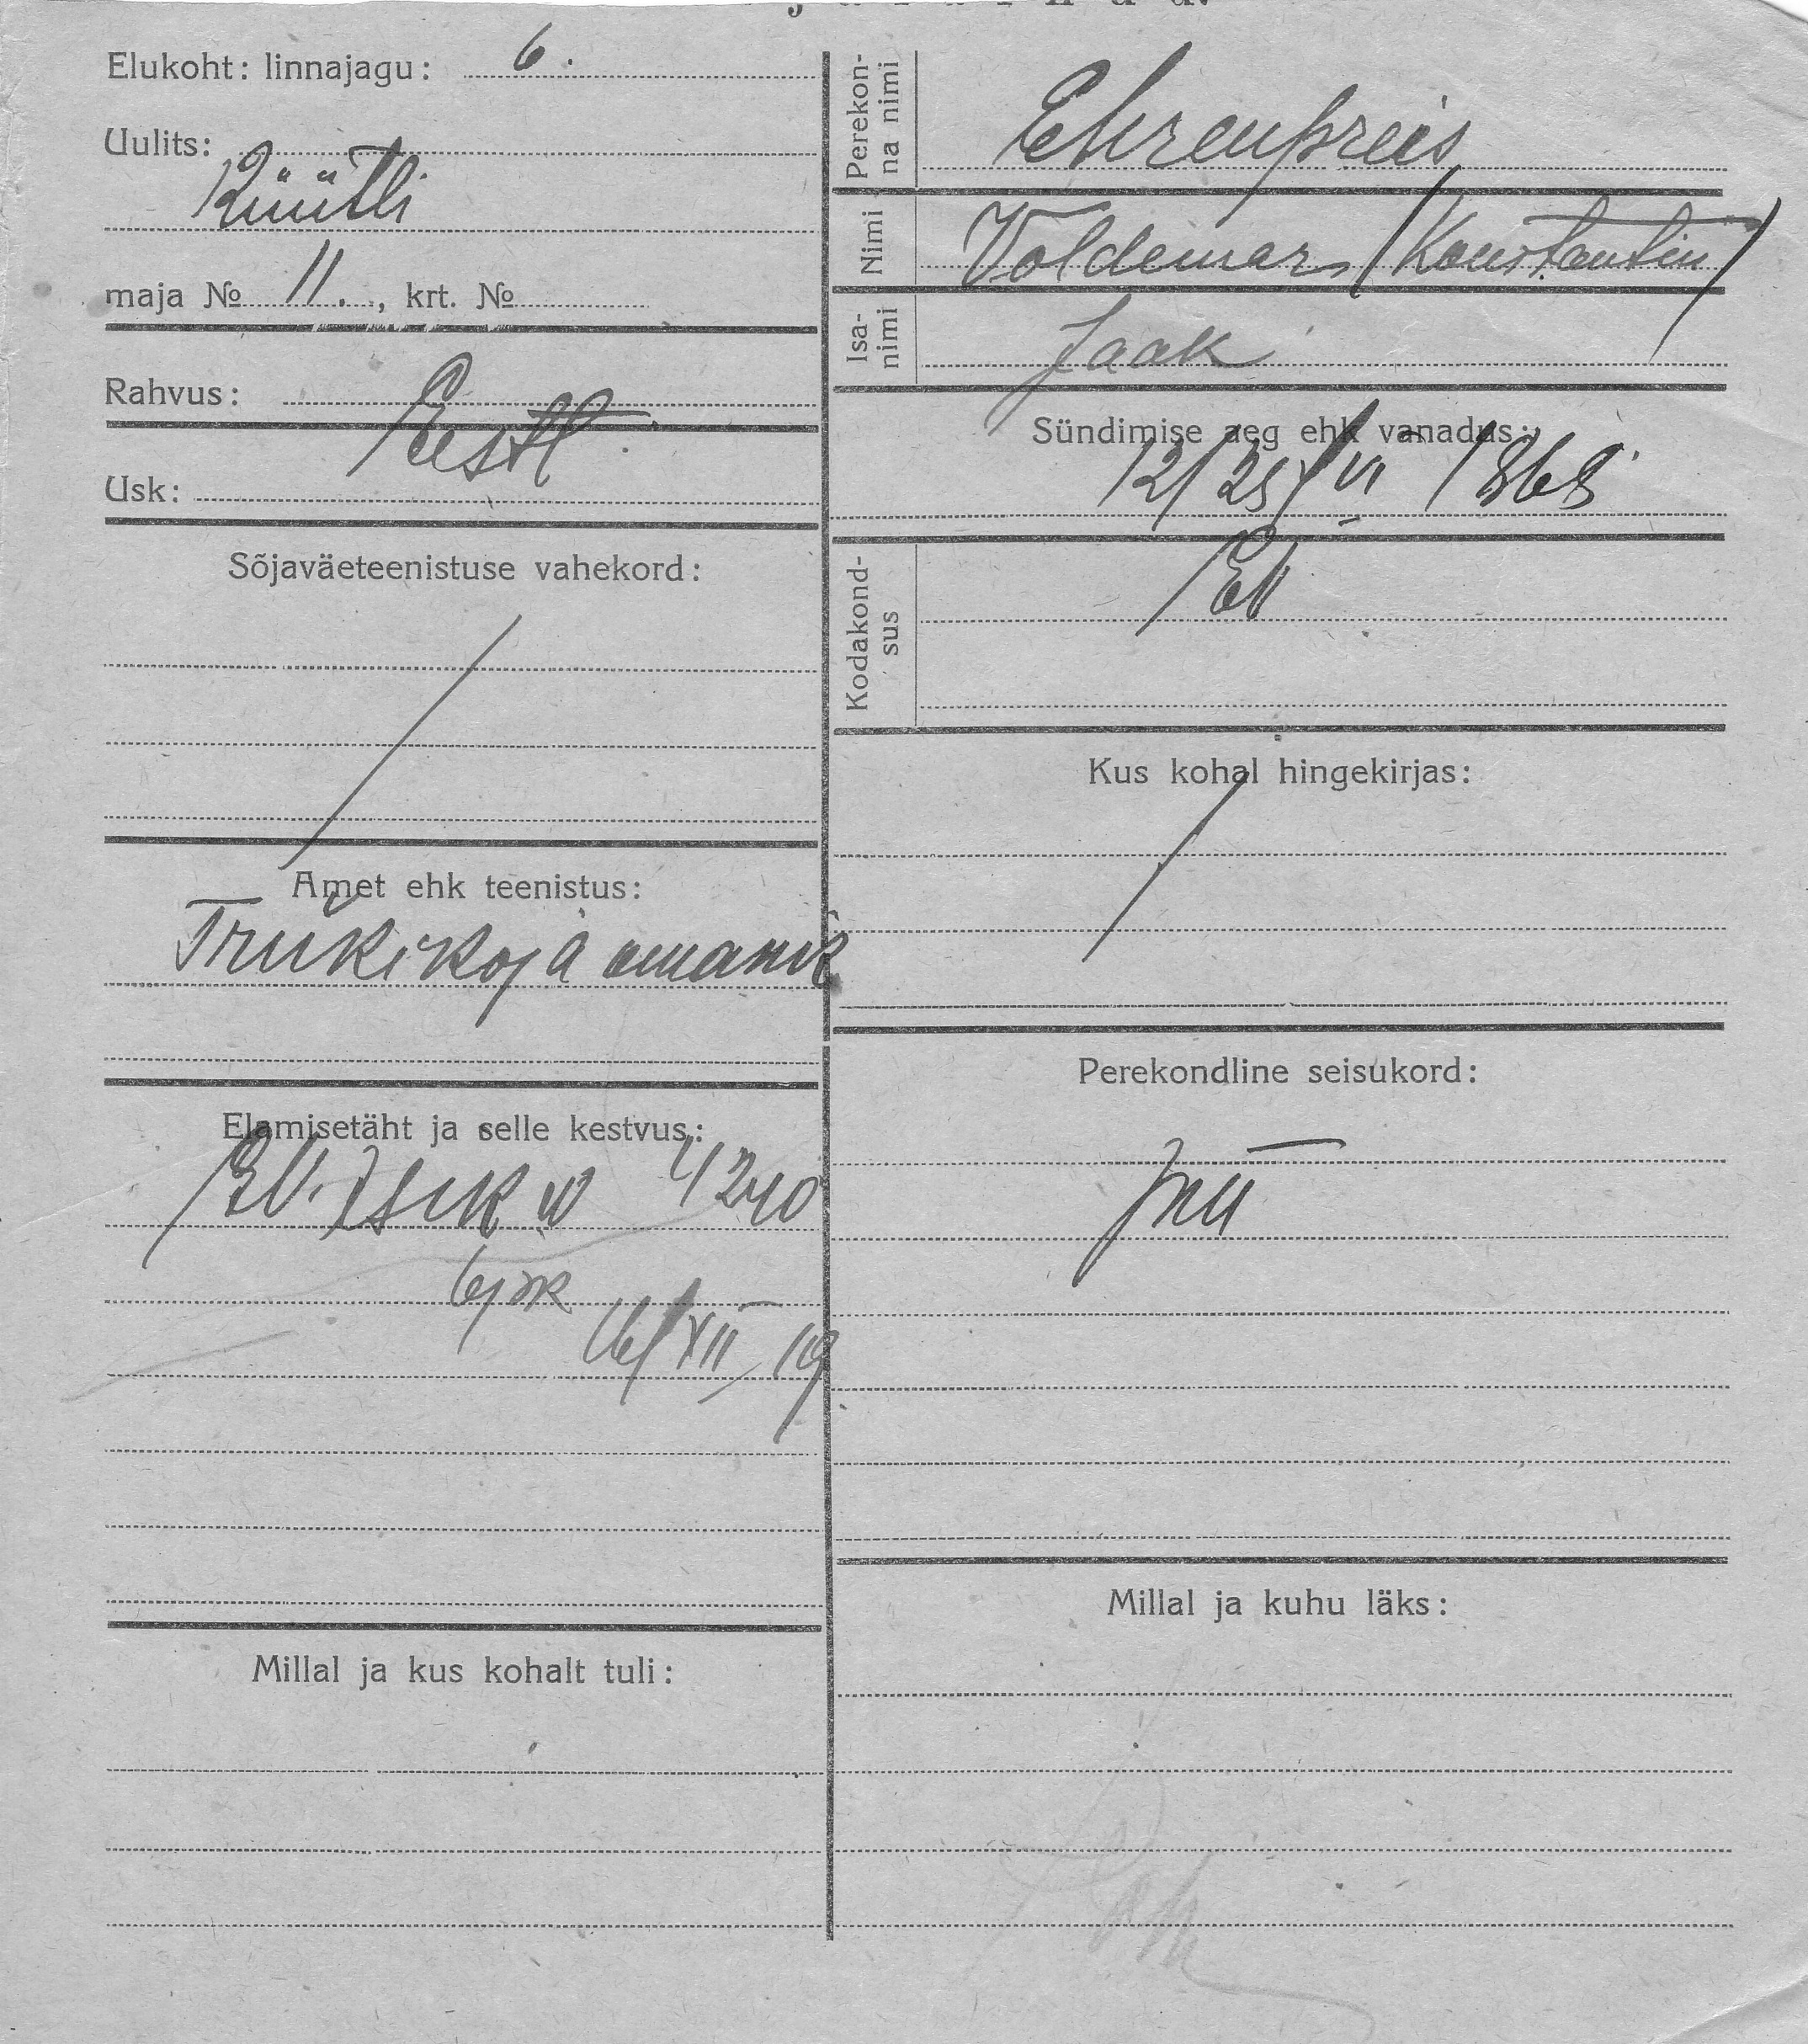 Elukoht: linnajagu: 6.
Uulits:
Rüütli
maja № 11., krt. №
Rahvus: Eesti
Usk:
Sõjaväeteenistuse vahekord:
Amet ehk teenistus:
Trükikoja omanik
Elamisetäht ja selle kestvus:
Isik 4240
6 jsk
16/XII 19
Millal ja kus kohalt tuli:
Perekon-
na nimi
Ehrenpreis
Nimi Voldemar (Konstantin)
Isa-
nimi
Jaak
Sündimise aeg ehk vanadus:
12/25/VI 1868
Kodakond-
sus
Kus kohal hingekirjas:
Perekondline seisukord:
Millal ja kuhu läks: